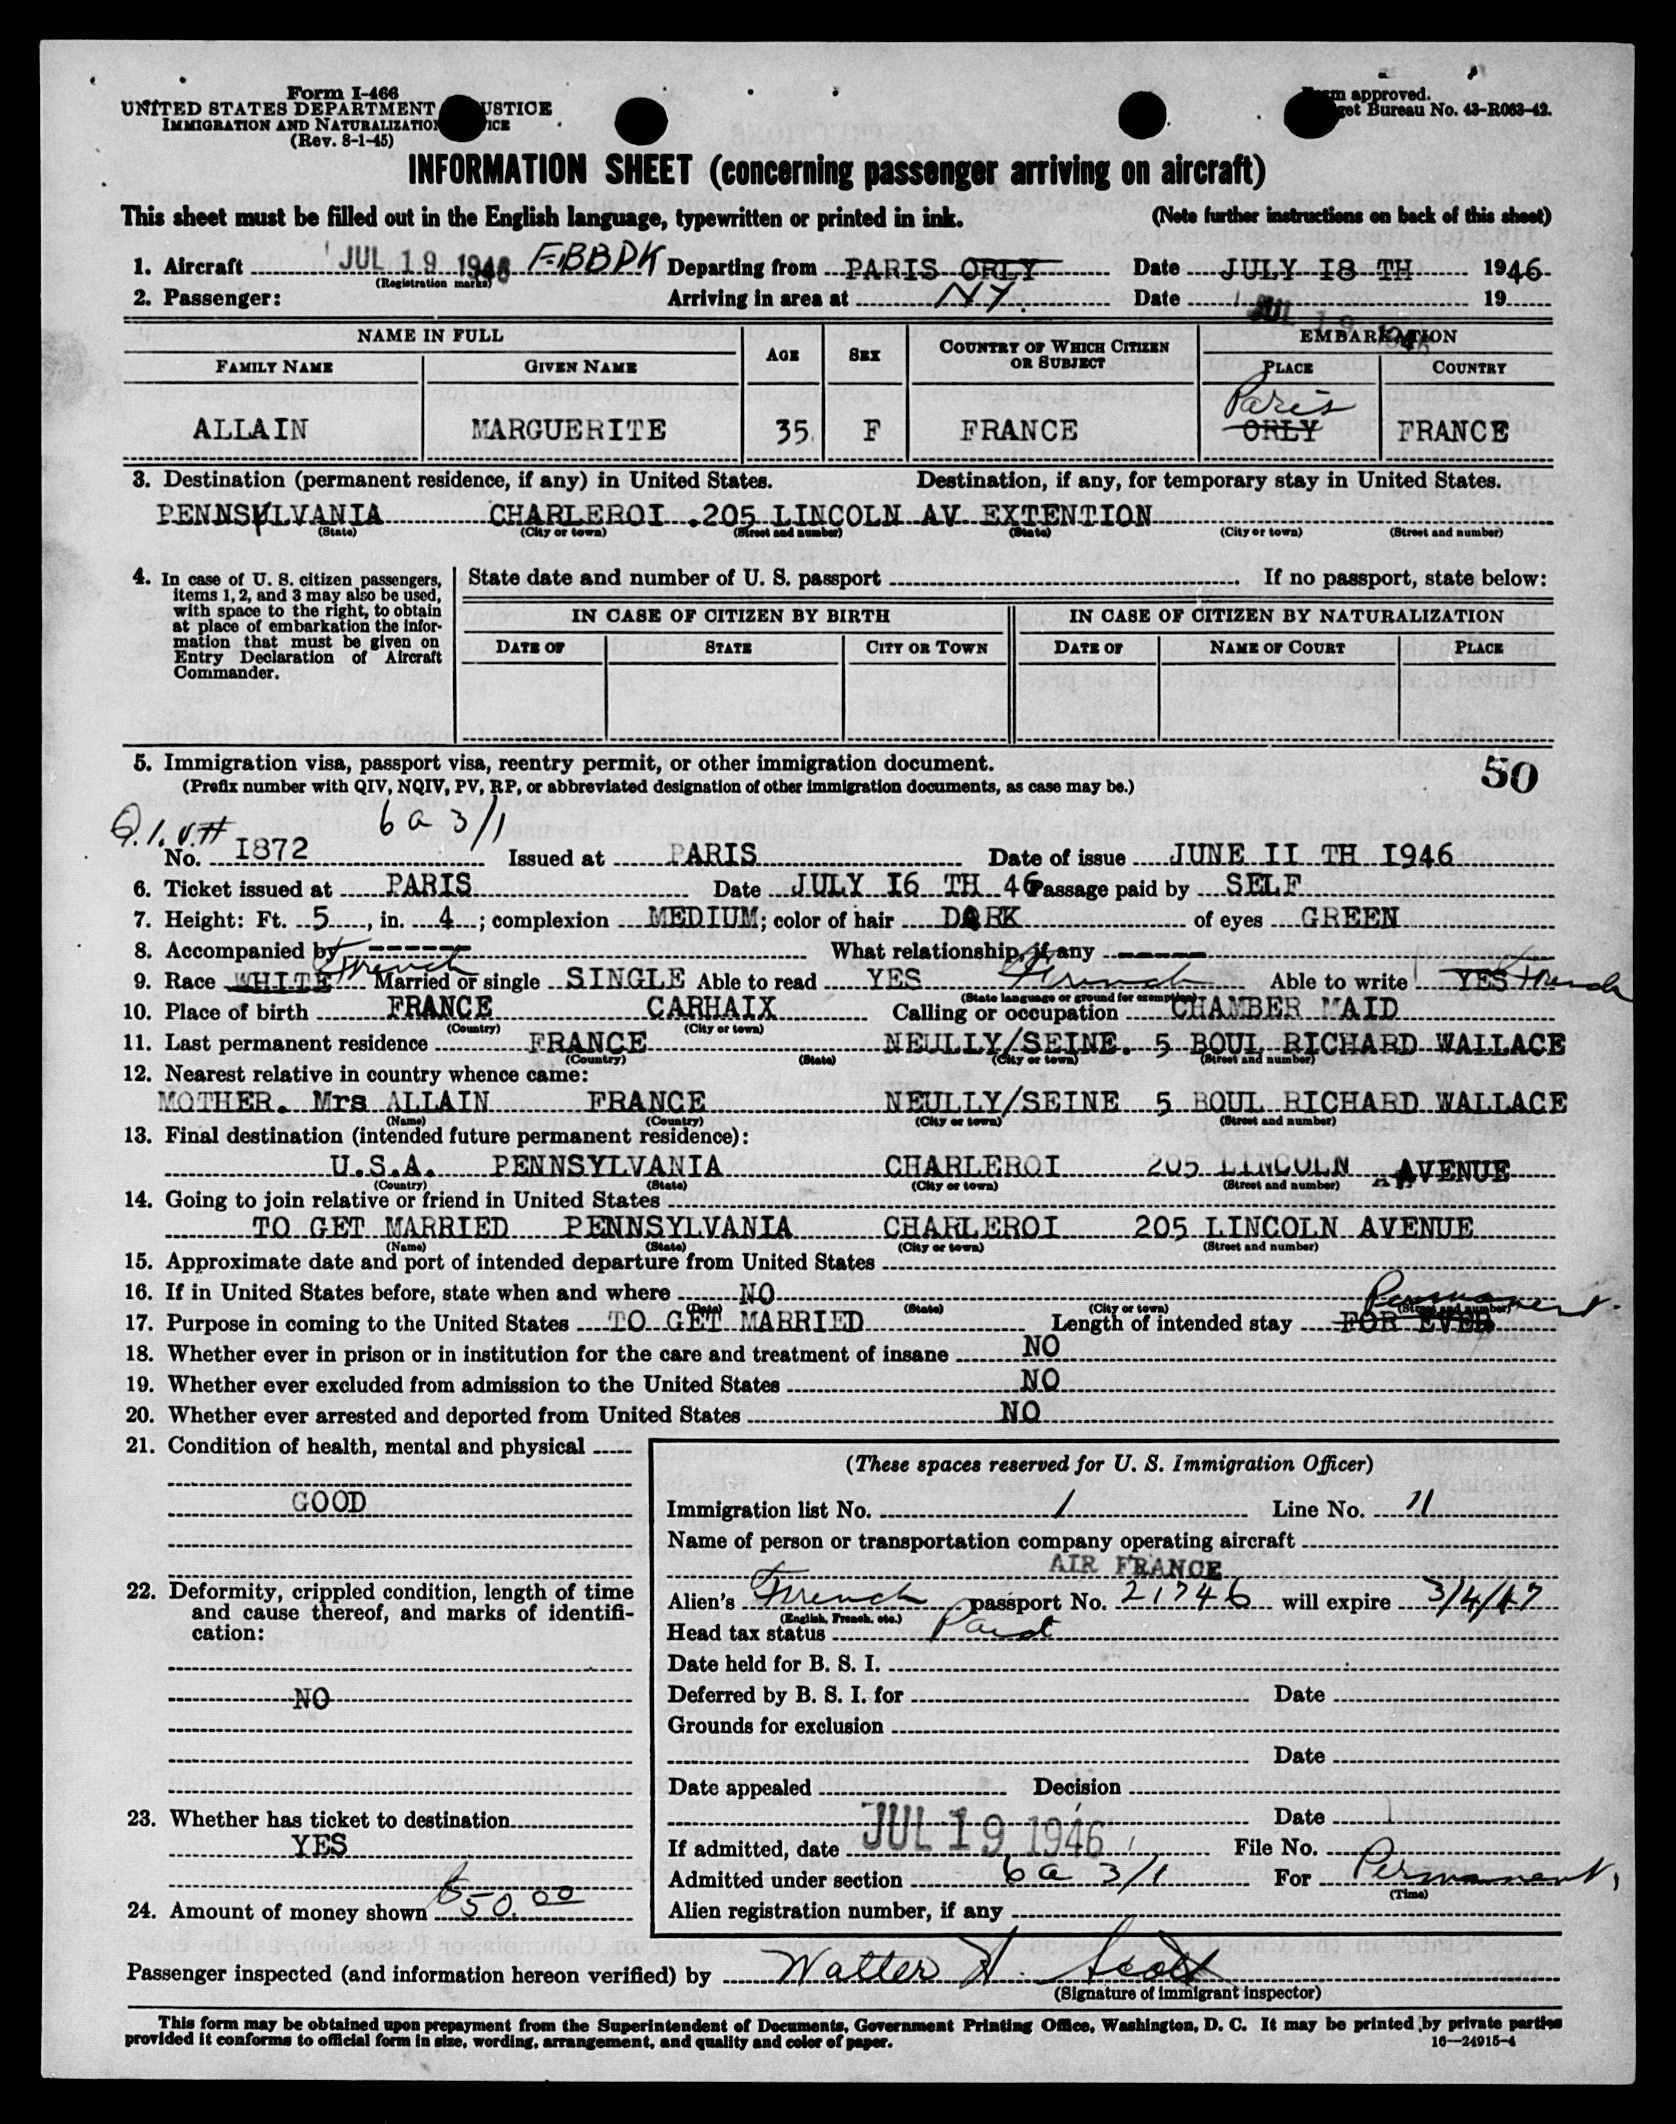 Form I-466
UNITED STATES DEPARTMENT USTICE
IMMIGRATION AND NATURALIZATION ICE
(Rev. 8-1-45)
Form approved.
get Bureau No. 43-R063-42.
INFORMATION SHEET (concerning passenger arriving on aircraft)
This sheet must be filled out in the English language, typewritten or printed in ink. (Note further instructions on back of this sheet)
1. Aircraft JUL 19 1946 F-BBDK Departing from PARIS ORLY Date JULY I8 TH 1946
(Registration marks)
2. Passenger: Arriving in area at NY. Date JUL 19 1946 19
NAME IN FULL AGE SEX COUNTRY OF WHICH CITIZEN OR SUBJECT EMBARKATION
FAMILY NAME GIVEN NAME PLACE COUNTRY
Paris
ALLAIN MARGUERITE 35 F FRANCE ORLY FRANCE
3. Destination (permanent residence, if any) in United States. Destination, if any, for temporary stay in United States.
PENNSYLVANIA CHARLEROI .205 LINCOLN AV EXTENTION
(State) (City or town) (Street and number) (State) (City or town) (Street and number)
4. In case of U. S. citizen passengers, items 1, 2, and 3 may also be used, with space to the right, to obtain at place of embarkation the information that must be given on Entry Declaration of Aircraft Commander.
State date and number of U. S. passport . If no passport, state below:
IN CASE OF CITIZEN BY BIRTH IN CASE OF CITIZEN BY NATURALIZATION
DATE OF STATE CITY OR TOWN DATE OF NAME OF COURT PLACE
5. Immigration visa, passport visa, reentry permit, or other immigration document. 50
(Prefix number with QIV, NQIV, PV, RP, or abbreviated designation of other immigration documents, as case may be.)
Q.I.V.# 6 a 3/1
No. I872 Issued at PARIS Date of issue JUNE II TH I946
6. Ticket issued at PARIS Date JULY I6 TH 46 Passage paid by SELF
7. Height: Ft. 5, in. 4; complexion MEDIUM; color of hair DARK of eyes GREEN
8. Accompanied by ------ What relationship, if any ------
9. Race WHITE French Married or single SINGLE Able to read YES French Able to write YES French
(State language or ground for exemption)
10. Place of birth FRANCE CARHAIX Calling or occupation CHAMBER MAID
(Country) (City or town)
11. Last permanent residence FRANCE NEULLY/SEINE. 5 BOUL RICHARD WALLACE
(Country) (State) (City or town) (Street and number)
12. Nearest relative in country whence came:
MOTHER. Mrs ALLAIN FRANCE NEULLY/SEINE 5 BOUL RICHARD WALLACE
(Name) (Country) (City or town) (Street and number)
13. Final destination (intended future permanent residence):
U.S.A. PENNSYLVANIA CHARLEROI 205 LINCOLN AVENUE
(Country) (State) (City or town) (Street and number)
14. Going to join relative or friend in United States
TO GET MARRIED PENNSYLVANIA CHARLEROI 205 LINCOLN AVENUE
(Name) (State) (City or town) (Street and number)
15. Approximate date and port of intended departure from United States
16. If in United States before, state when and where NO
(Date) (State) (City or town) (Street and number)
Permanent.
17. Purpose in coming to the United States TO GET MARRIED Length of intended stay FOR EVER
18. Whether ever in prison or in institution for the care and treatment of insane NO
19. Whether ever excluded from admission to the United States NO
20. Whether ever arrested and deported from United States NO
21. Condition of health, mental and physical
GOOD
22. Deformity, crippled condition, length of time
and cause thereof, and marks of identifi-
cation:
NO
23. Whether has ticket to destination
YES
24. Amount of money shown $50.00
(These spaces reserved for U. S. Immigration Officer)
Immigration list No. 1 Line No. 11
Name of person or transportation company operating aircraft
AIR FRANCE
Alien's French passport No. 21746 will expire 3/4/47
(English, French, etc.)
Head tax status Paid
Date held for B. S. I.
Deferred by B. S. I. for Date
Grounds for exclusion
Date
Date appealed Decision
Date
If admitted, date JUL 19 1946 File No.
Admitted under section 6 a 3/1 For Permanent,
(Time)
Alien registration number, if any
Passenger inspected (and information hereon verified) by Walter H. Scott
(Signature of immigrant inspector)
This form may be obtained upon prepayment from the Superintendent of Documents, Government Printing Office, Washington, D. C. It may be printed by private parties
provided it conforms to official form in size, wording, arrangement, and quality and color of paper. 16—24915-4